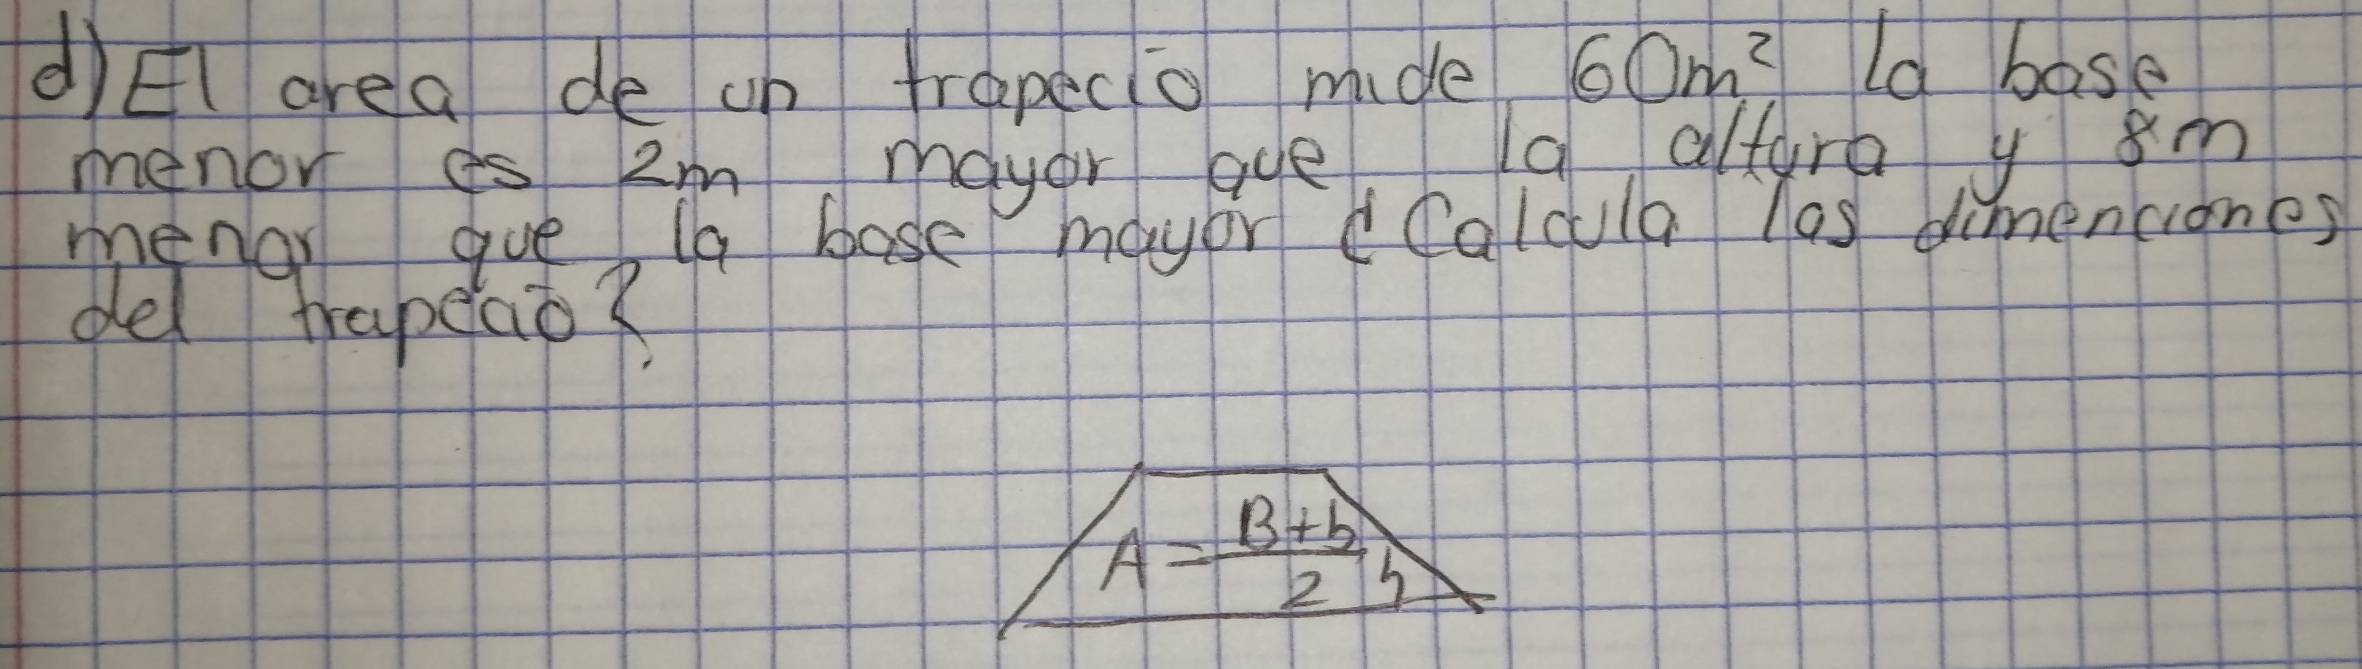 d) El area de un trapecio mide 60m² la base
menor es 2m mayor que la altura y 8m
menor que la base mayor ¿Calcula las dimenciones
del trapecio?
A = B+b/2 h